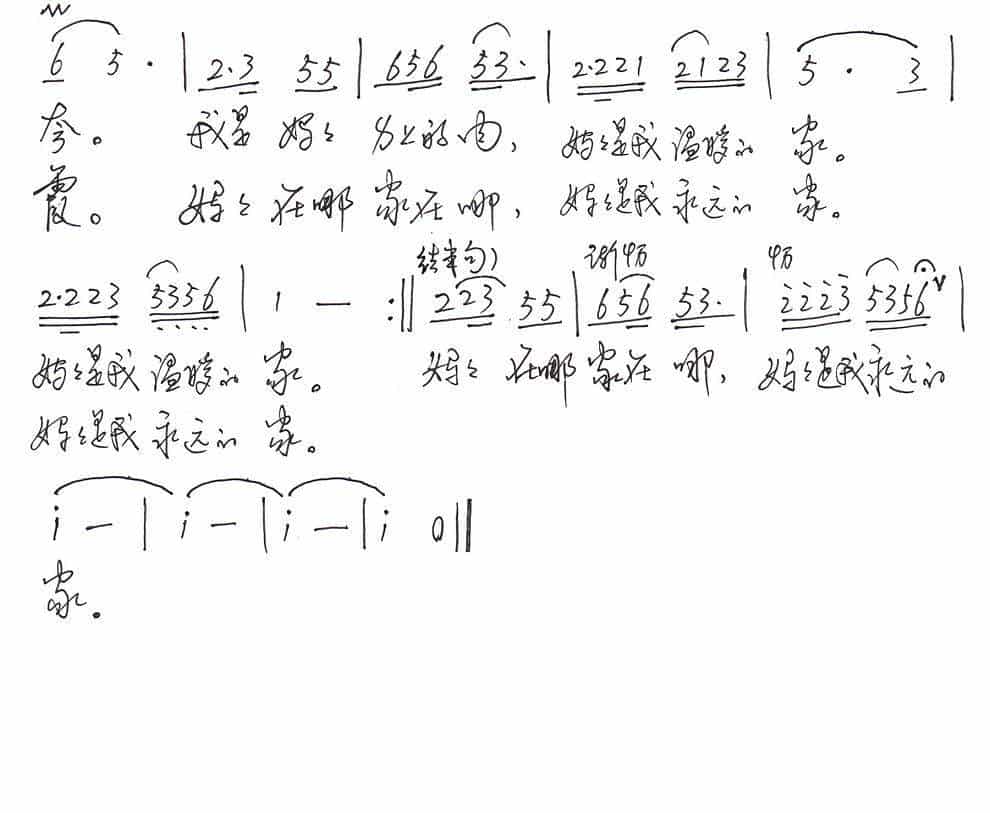 6 5 · | 2·3 55 | 656 53· | 2·221 2123 | 5 · 3 |
夸。 我是 妈妈 身上的肉, 妈妈是我温暖的 家。
霞。 妈妈在哪 家在哪, 妈妈是我永远的 家。
结束句) 渐慢 慢
2·223 5356 | 1 — :‖ 223 55 | 656 53· | i̇i̇2̇3̇ 5356 |
妈妈是我温暖的 家。 妈妈 在哪 家在 哪, 妈妈是我永远的
妈妈是我永远的 家。
i — | i — | i — | i 0 ‖
家。